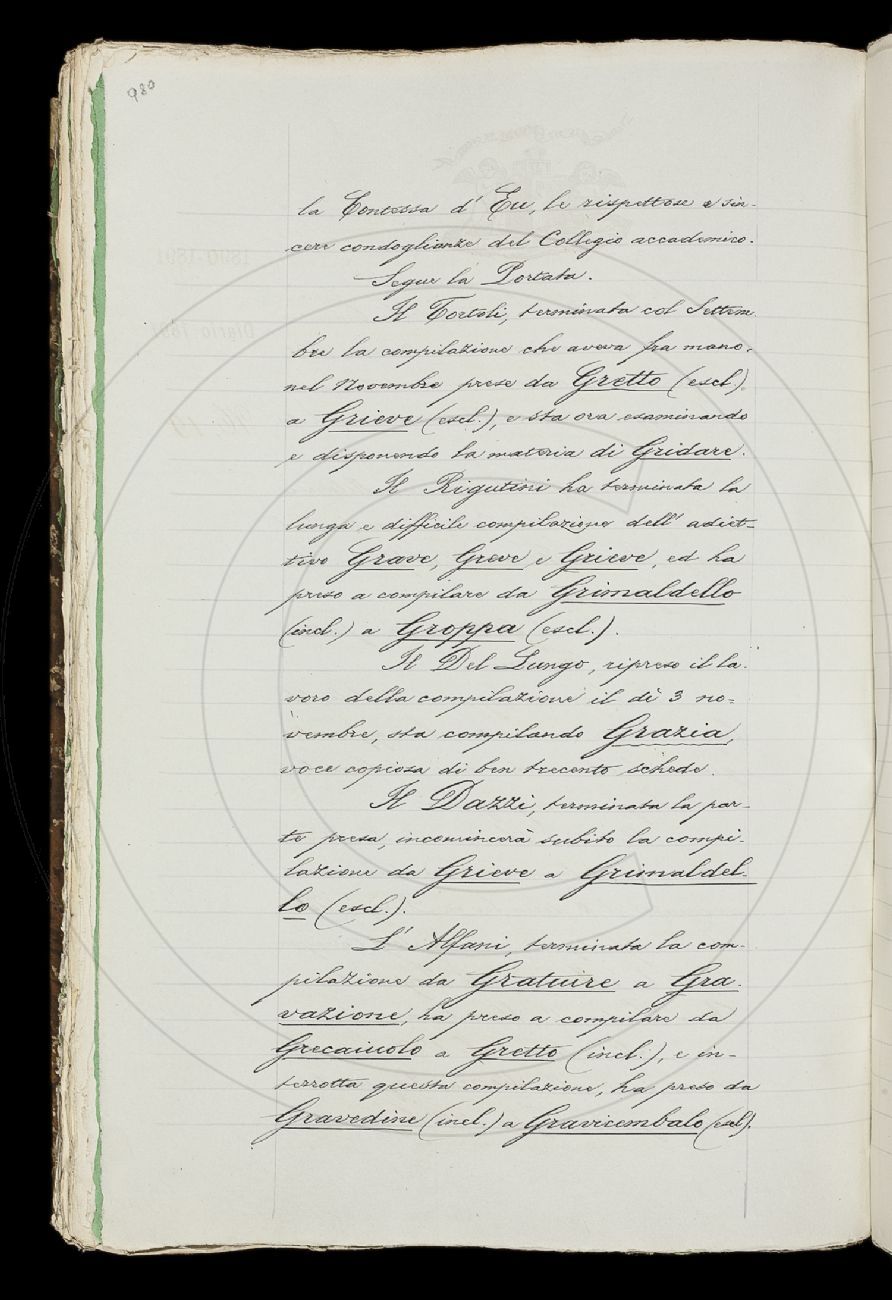 980
la Contessa d' Eu, le rispettose e sin-
cere condoglianze del Collegio accademico.
Segue la Portata.
Il Tortoli, terminata col Settem
bre la compilazione che aveva fra mano,
nel Novembre prese da Gretto (escl.)
a Grieve (escl.), e sta ora esaminando
e disponendo la materia di Gridare.
Il Rigutini ha terminata la
lunga e difficile compilazione dell' adiet-
tivo Grave, Greve e Grieve, ed ha
preso a compilare da Grimaldello
(incl.) a Groppa (escl.).
Il Del Lungo, ripreso il la-
voro della compilazione il dì 3 no-
vembre, sta compilando Grazia,
voce copiosa di ben trecento schede.
Il Dazzi, terminata la par-
te presa, incomincerà subito la compi-
lazione da Grieve a Grimaldel-
lo (escl.).
L' Alfani, terminata la com-
pilazione da Gratuire a Gra-
vazione, ha preso a compilare da
Grecaiuolo a Gretto (incl.), e in-
terrotta questa compilazione, ha preso da
Gravedine (incl.) a Gravicembalo (escl).